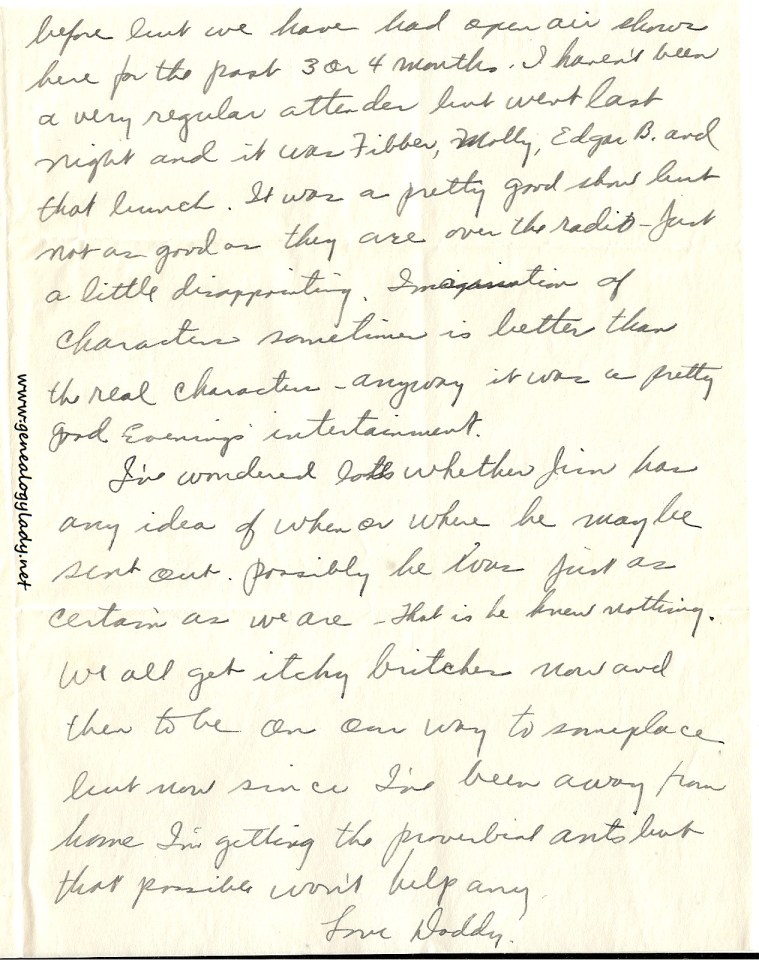 before but we have had open air shows
here for the past 3 or 4 months. I haven't been
a very regular attender but went last
night and it was Fibber, Molly, Edgar B. and
that bunch. It was a pretty good show but
not as good as they are over the radio - just
a little disappointing. Imagination of
characters sometimes is better than
the real characters - anyway it was a pretty
good Evenings intertainment.
I've wondered lots whether Jim has
any idea of when or where he may be
sent out. possibly he was just as
certain as we are - that is he knew nothing.
We all get itchy britches now and
then to be on our way to someplace
but now since I've been away from
home I'm getting the proverbial ants but
that possible won't help any
Love Daddy.
www.genealogylady.net